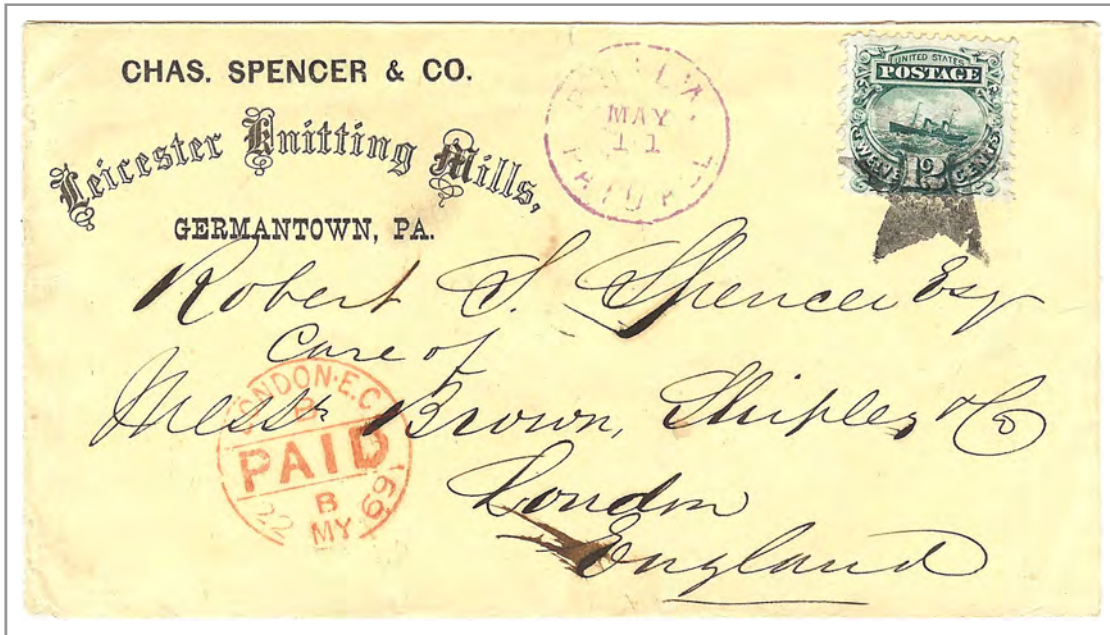 CHAS. SPENCER & CO.
Leicester Knitting Mills,
GERMANTOWN, PA.
MAY
11
PAID
UNITED STATES
POSTAGE
TWELVE 12 CENTS
Robert S. Spencer Esq
Care of
Messrs Brown, Shipley & Co
London
England
LONDON·E.C
B
PAID
B
22 MY 69